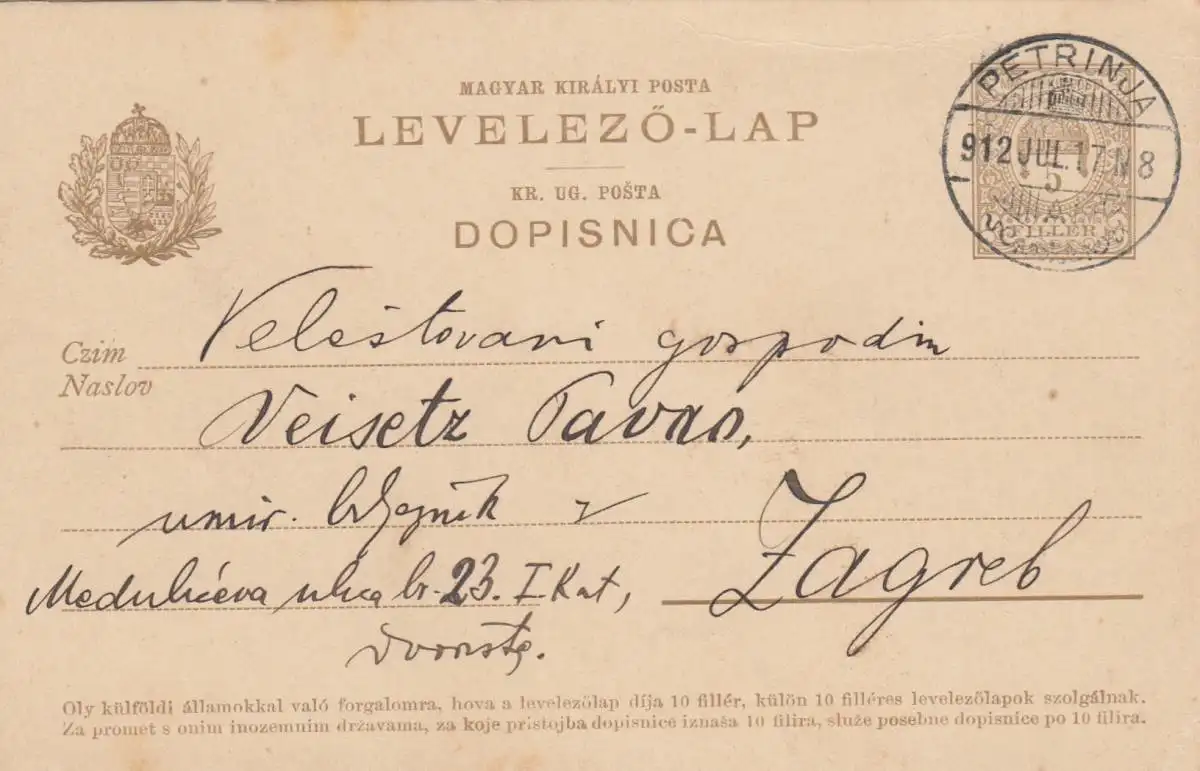 MAGYAR KIRÁLYI POSTA
LEVELEZŐ-LAP
KR. UG. POŠTA
DOPISNICA
PETRINJA
912 JUL. 17 N 8
5
FILLÉR
Czim
Naslov
Veleštovani gospodin
Veisetz Pavao,
umir. u
Medulićeva ulica br. 23. I Kat,
Zagreb
Oly külföldi államokkal való forgalomra, hova a levelezőlap díja 10 fillér, külön 10 filléres levelezőlapok szolgálnak.
Za promet s onim inozemnim državama, za koje pristojba dopisnice iznaša 10 filira, služe posebne dopisnice po 10 filira.